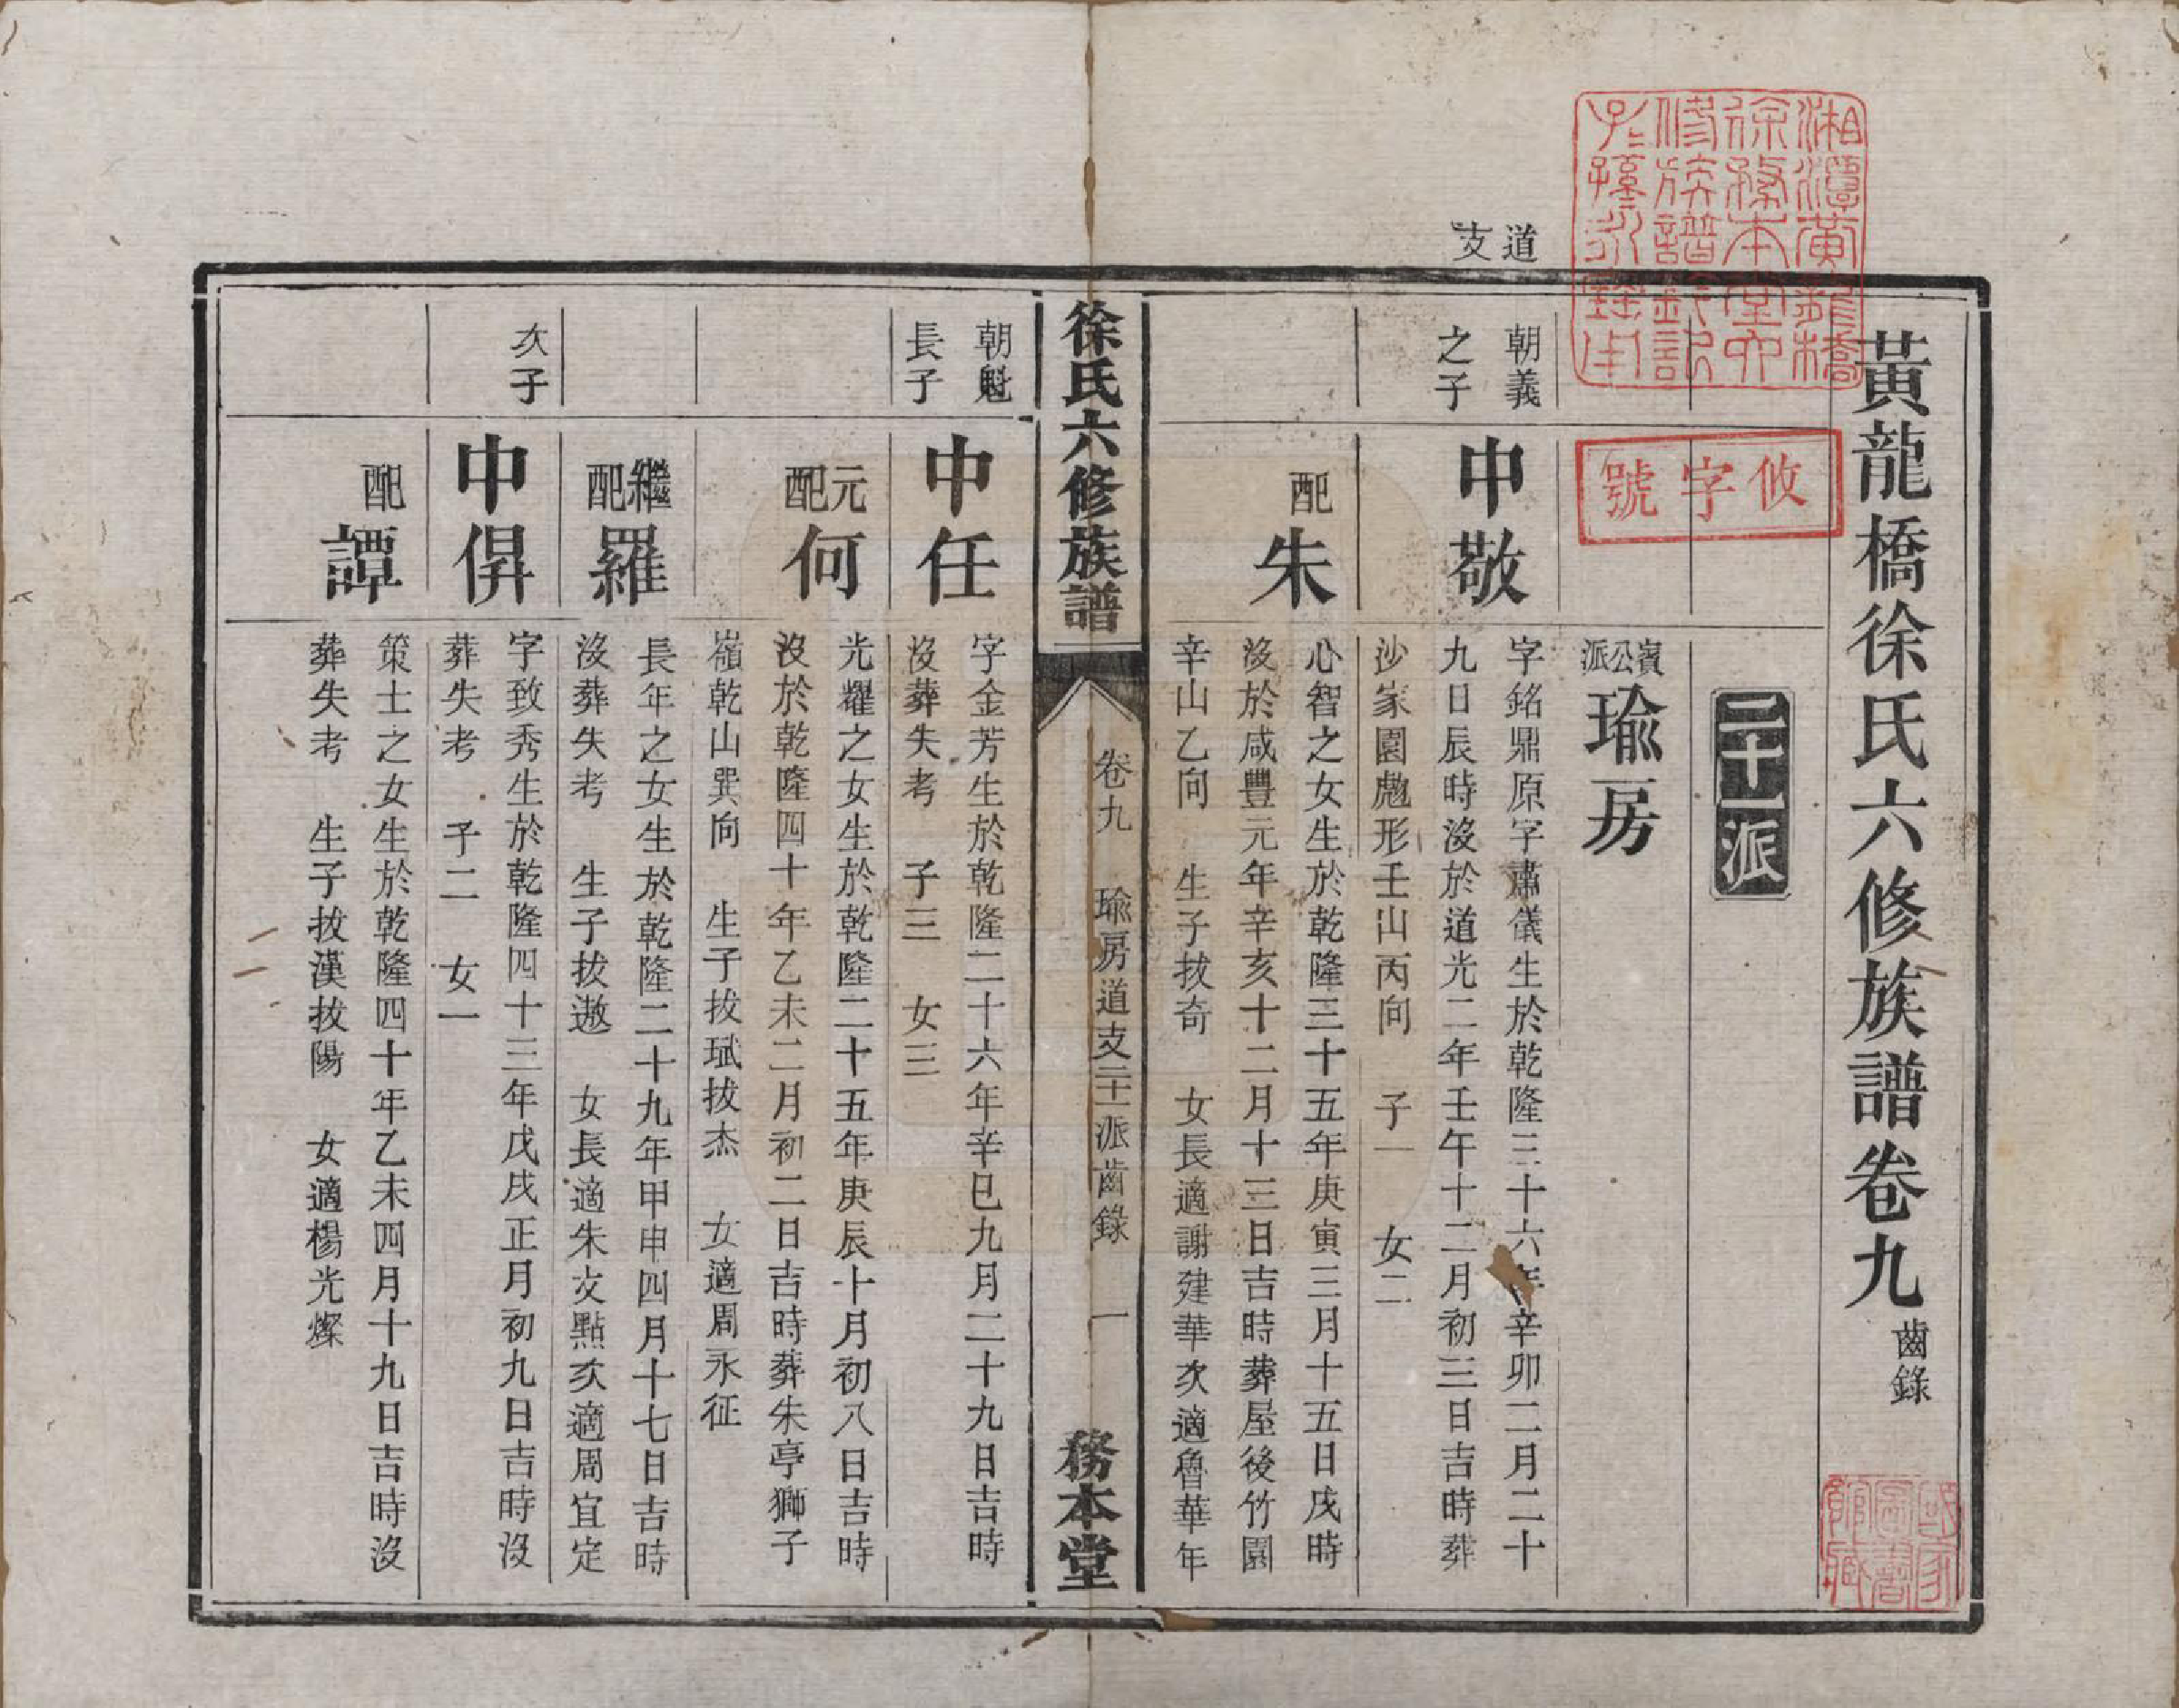 黃龍橋徐氏六修族譜卷九 齒錄
湘潭黃龍橋
徐務本堂六
修族譜鈐記
子孫永寶用
攸字號
國家圖書館藏
二十一派
道支
賓公派 瑜房
朝義之子
中敬
字銘鼎原字肅儀生於乾隆三十六年辛卯二月二十
九日辰時沒於道光二年壬午十二月初三日吉時葬
沙家園虺形壬山丙向 子一 女二
配朱
心智之女生於乾隆三十五年庚寅三月十五日戌時
沒於咸豐元年辛亥十二月十三日吉時葬屋後竹園
辛山乙向 生子拔奇 女長適謝建華次適魯華年
徐氏六修族譜 卷九 瑜房道支二十一派齒錄 一 務本堂
朝魁長子
中任
字金芳生於乾隆二十六年辛巳九月二十九日吉時
沒葬失考 子三 女三
元配何
光耀之女生於乾隆二十五年庚辰十月初八日吉時
沒於乾隆四十年乙未二月初二日吉時葬朱亭獅子
嶺乾山巽向 生子拔斌拔杰 女適周永征
繼配羅
長年之女生於乾隆二十九年甲申四月十七日吉時
沒葬失考 生子拔遨 女長適朱文點次適周宜定
次子
中倶
字致秀生於乾隆四十三年戊戌正月初九日吉時沒
葬失考 子二 女一
配譚
策士之女生於乾隆四十年乙未四月十九日吉時沒
葬失考 生子拔漢拔陽 女適楊光燦